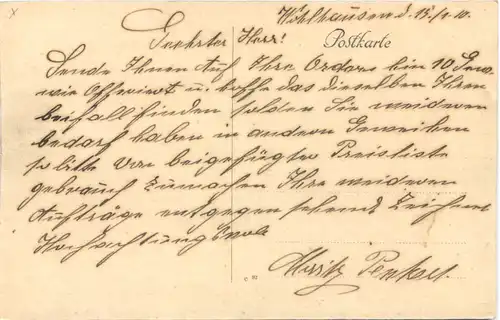 Wöhlhausen d. 15./1.10.
Geehrter Herr!
Postkarte
Sende Ihnen auf Ihre Orders hin 10 Gew.
wie Offeriert u. hoffe das dieselben Ihren
beifall finden solden Sie weideren
bedarf haben in andern Geweihen
so bitte von beigefügter Preisliste
gebrauch zumachen Ihre weideren
Aufträge entgegen sehend Zeichnet
Hochachtungsvol
Moritz